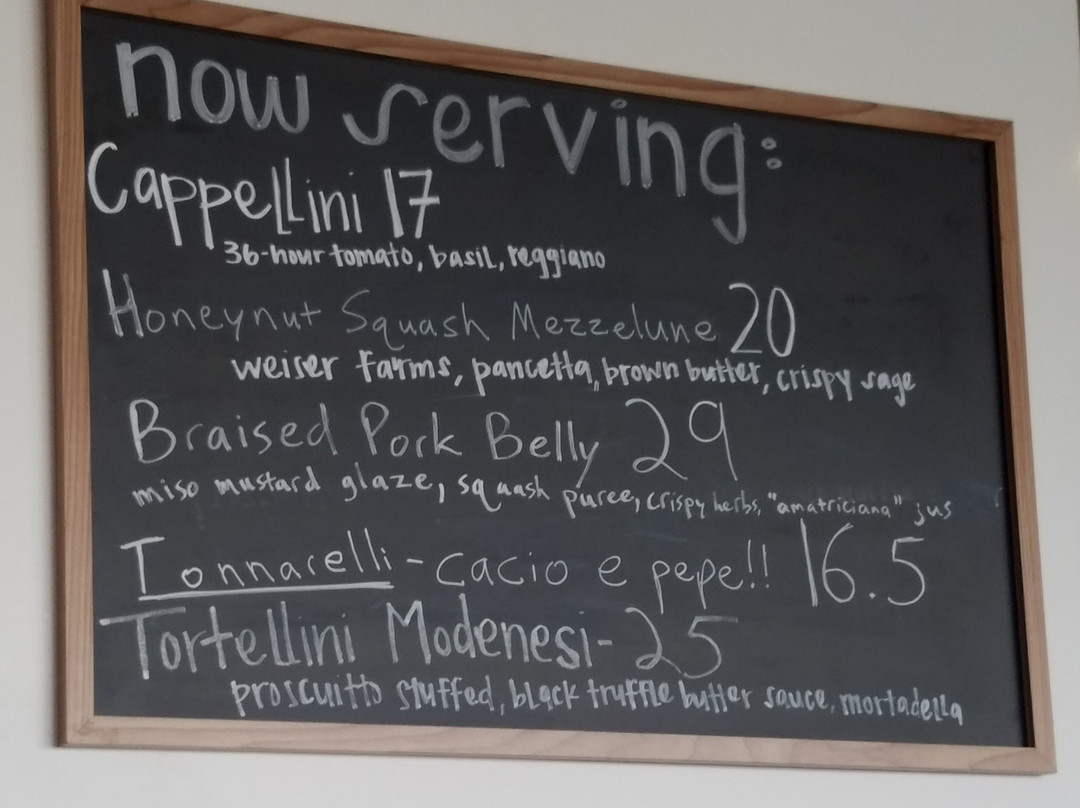 now serving:
Cappellini 17
36-hour tomato, basil, reggiano
Honeynut Squash Mezzelune 20
weiser farms, pancetta, brown butter, crispy sage
Braised Pork Belly 29
miso mustard glaze, squash puree, crispy herbs, "amatriciana" jus
Tonnarelli - cacio e pepe!! 16.5
Tortellini Modenesi - 25
proscuitto stuffed, black truffle butter sauce, mortadella